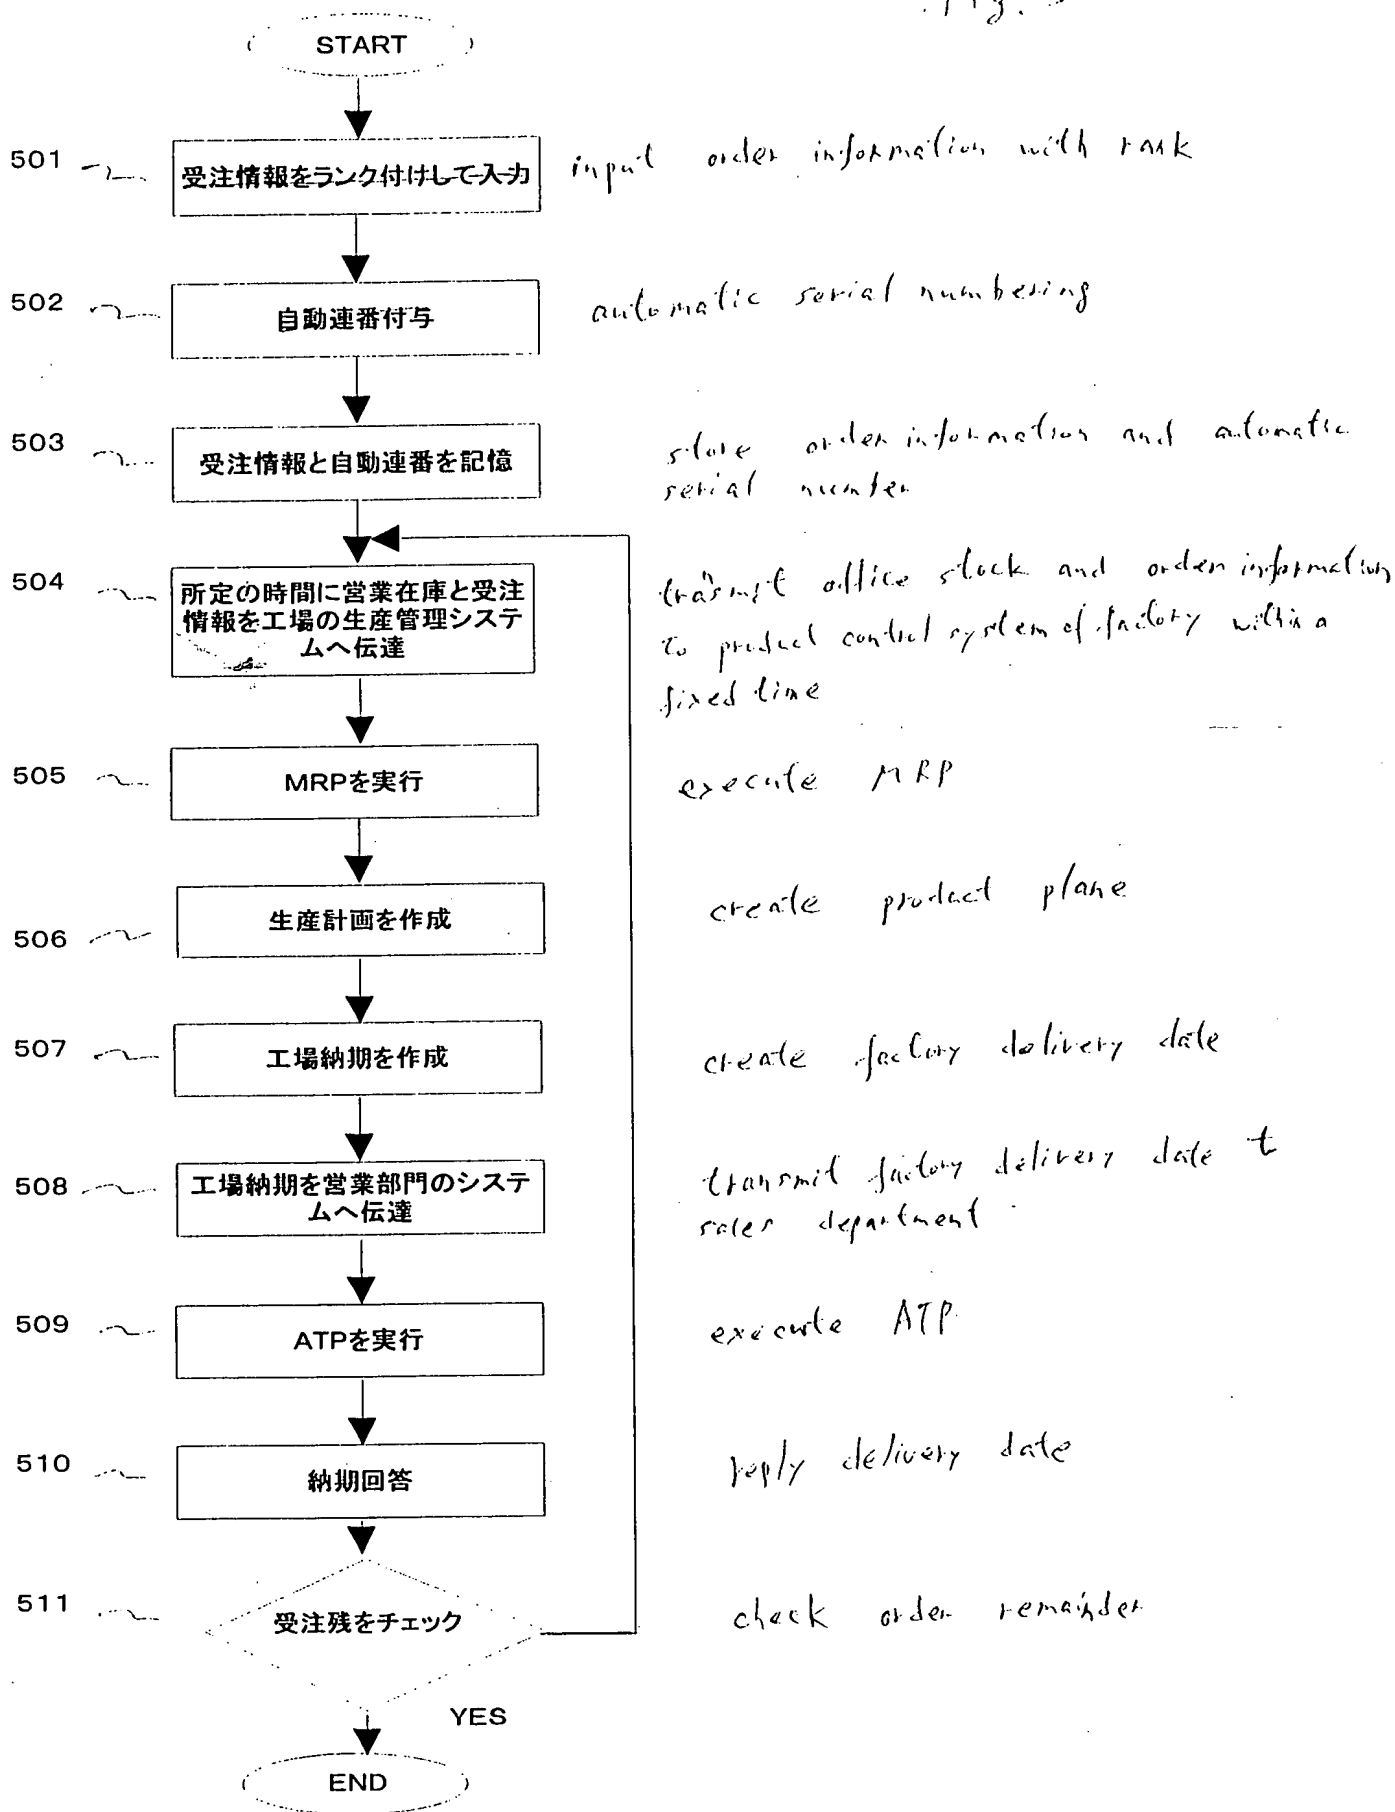 Fig.
START
501
受注情報をランク付けして入力
input order information with rank
502
自動連番付与
automatic serial numbering
503
受注情報と自動連番を記憶
store order information and automatic
serial number
504
所定の時間に営業在庫と受注
情報を工場の生産管理システ
ムへ伝達
trasmit office stock and order information
to product control system of factory within a
fixed time
505
MRPを実行
execute MRP
506
生産計画を作成
create product plane
507
工場納期を作成
create factory delivery date
508
工場納期を営業部門のシステ
ムへ伝達
transmit factory delivery date t
sales department
509
ATPを実行
execute ATP
510
納期回答
reply delivery date
511
受注残をチェック
check order remainder
YES
END